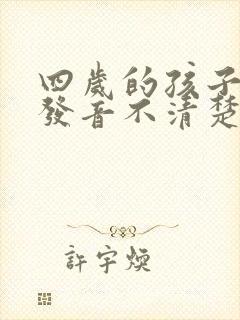 四歲的孩子
發音不清楚
許宇煥